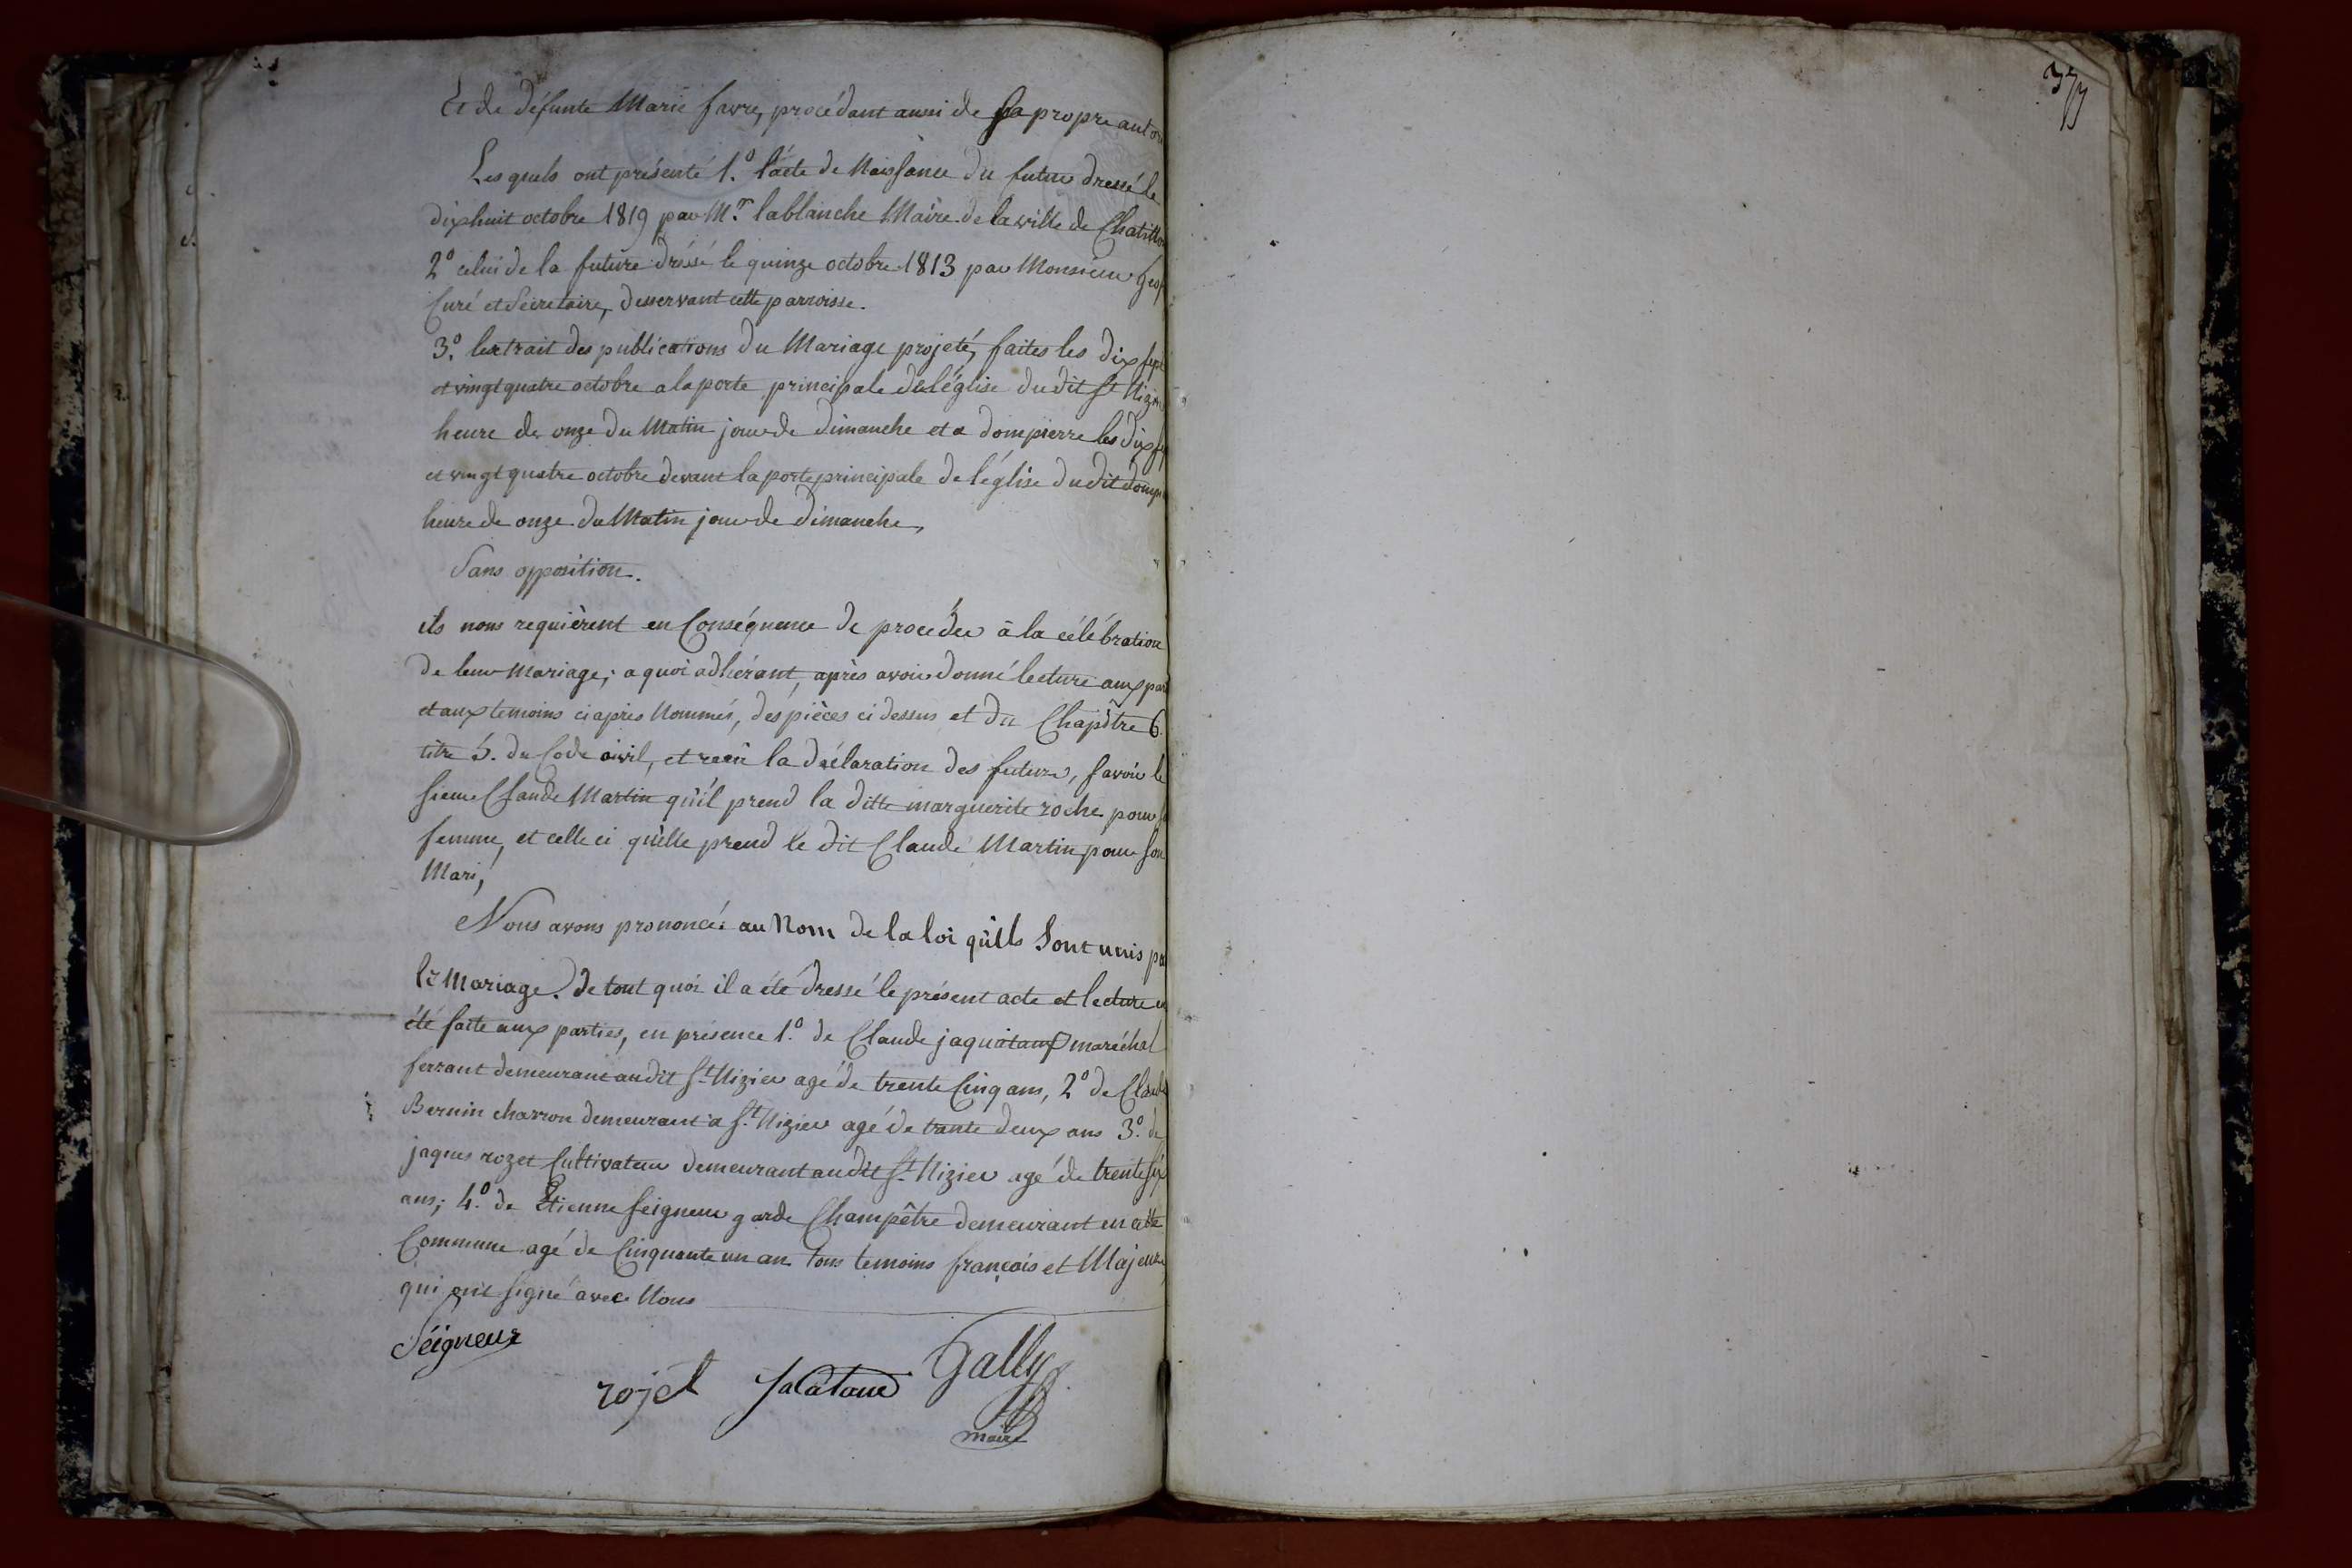 Et de défunte Marie favre, procédant aussi de sa propre autor
Les quels ont présenté 1.o l'acte de Naissance du futur dressé le
dixhuit octobre 1819 par M.r lablanche Maire de la ville de Chatillon
2o celui de la future dréssé le quinze octobre 1813 par Monsieur
Curé et Sécretaire, desservant cette parroisse.
3.o lextrait des publications du Mariage projeté, faites les dix sept
et vingt quatre octobre a la porte principale de l'église du dit St Nizier
heure de onze du Matin jour de dimanche et a dompierre les dix sep
et vingt quatre octobre devant la porte principale de l'église du dit domp
heure de onze du Matin jour de dimanche,
Sans opposition.
ils nous requièrent en Conséquence de procéder à la célébration
de leur Mariage; a quoi adhérant, après avoir donné lecture aux part
et aux temoins ci après Nommés, des pièces ci dessus et du Chapître 6.
titre 5. du Code civil, et reçu la déclaration des futurs, savoir le
sieur Claude Martin qu'il prend la ditte marguerite roche pour sa
femme, et celle ci qu'elle prend le dit Claude Martin pour son
Mari,
Nous avons prononcé au Nom de la loi qu'ils Sont unis pa
le Mariage. De tout quoi il a été dressé le présent acte et lecture en
été faite aux parties, en présence 1.o de Claude jaquataux maréchal
ferrant demeurant audit St Nizier agé de trente Cinq ans, 2o de Claude
Bernin charron demeurant a St Nizier agé de trante deux ans 3.o de
jaques rozet Cultivateur demeurant audit St Nizier agé de trente six
ans; 4.o de Etienne Seigneur garde Champêtre demeurant en cette
Commune agé de Cinquante un an tous temoins françois et Majeurs,
qui ont signé avec Nous
Séigneur
rojet Jacataud Gally
maire
377